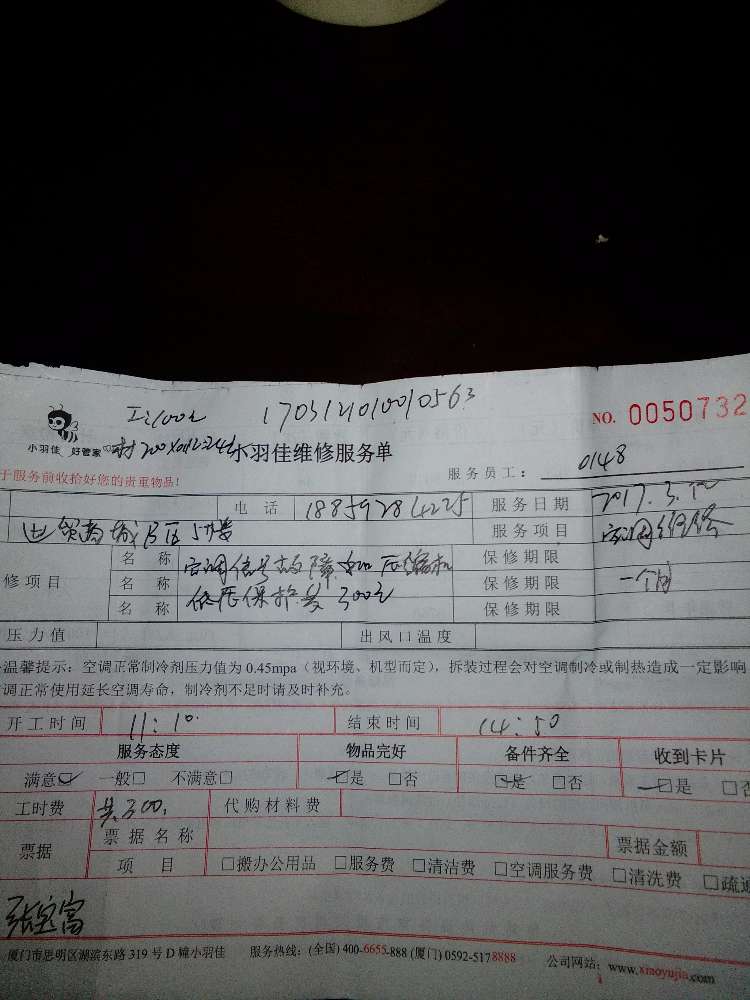 170312010010563
NO. 0050732
小羽佳 好管家
小羽佳维修服务单
于服务前收拾好您的贵重物品!
服务员工: 0148
电话 18859284225 服务日期 2017.3.
世贸商城B区5楼 服务项目 空调维修
修项目 名称 空调信号故障 和压缩机 保修期限
名称 低压保护 共300元 保修期限 一个月
名称 保修期限
压力值 出风口温度
温馨提示:空调正常制冷剂压力值为 0.45mpa(视环境、机型而定),拆装过程会对空调制冷或制热造成一定影响
调正常使用延长空调寿命,制冷剂不足时请及时补充。
开工时间 11:10 结束时间 14:50
服务态度 物品完好 备件齐全 收到卡片
满意 一般□ 不满意□ 是 □否 是 □否 是 □否
工时费 共300, 代购材料费
票据 票据名称 票据金额
项目 □搬办公用品 □服务费 □清洁费 □空调服务费 □清洗费 □疏通
张宝富
厦门市思明区湖滨东路 319 号 D 幢小羽佳 服务热线:(全国) 400-6655-888 (厦门) 0592-5178888 公司网站:www.xiaoyujia.com